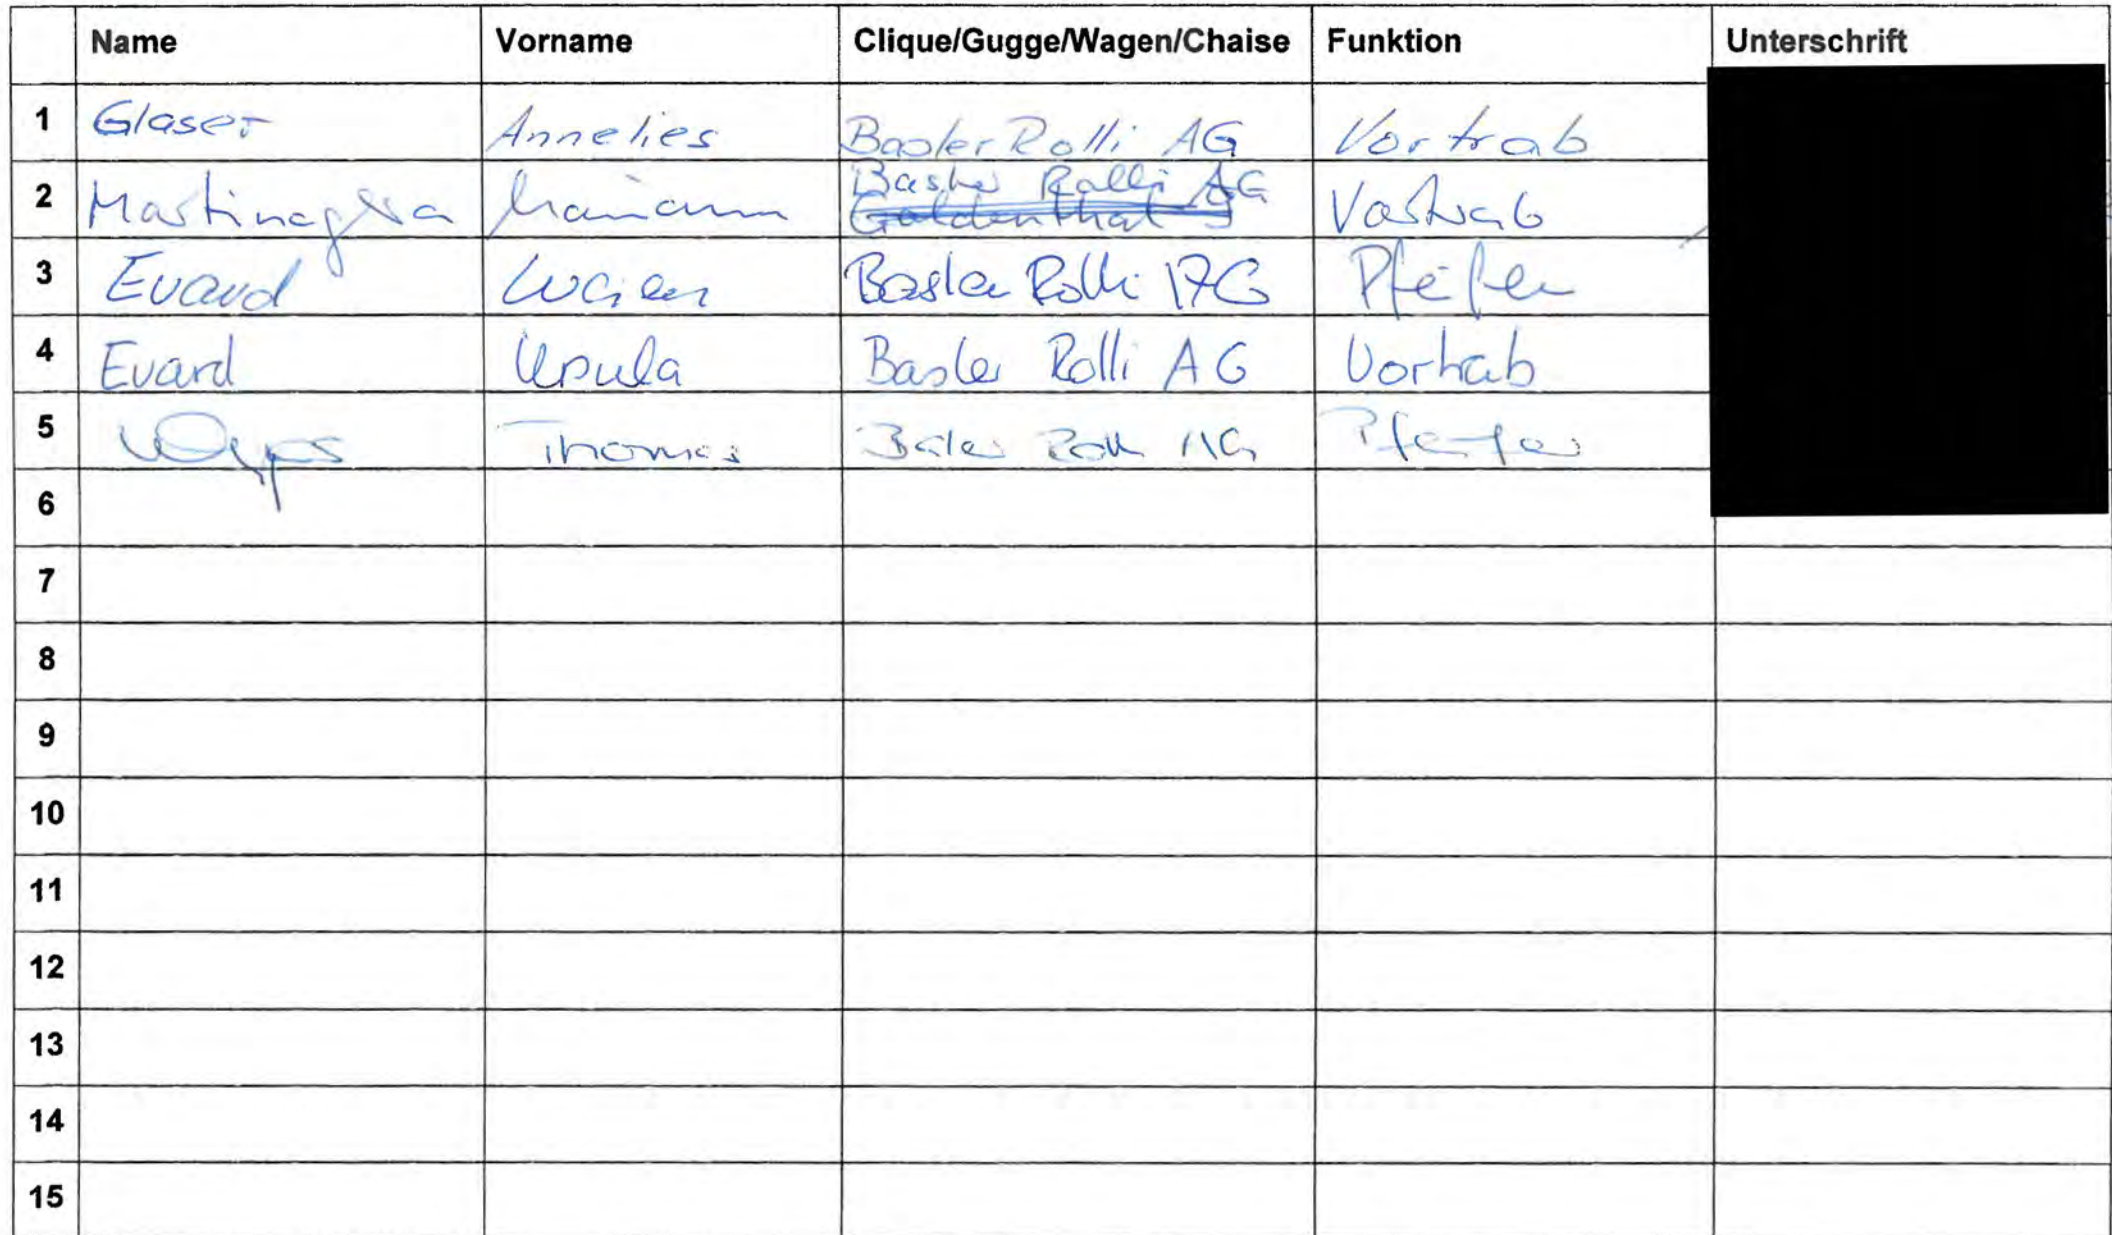 Name Vorname Clique/Gugge/Wagen/Chaise Funktion Unterschrift
1 Glaser Annelies Basler Rolli AG Vortrab
2 Basler Rolli AG Vortrab
Goldenthal 5
3 Evard Lucien Basler Rolli AG Pfeifer
4 Evard Ursula Basler Rolli AG Vortrab
5 Thomas Basler Rolli AG Pfeifer
6
7
8
9
10
11
12
13
14
15